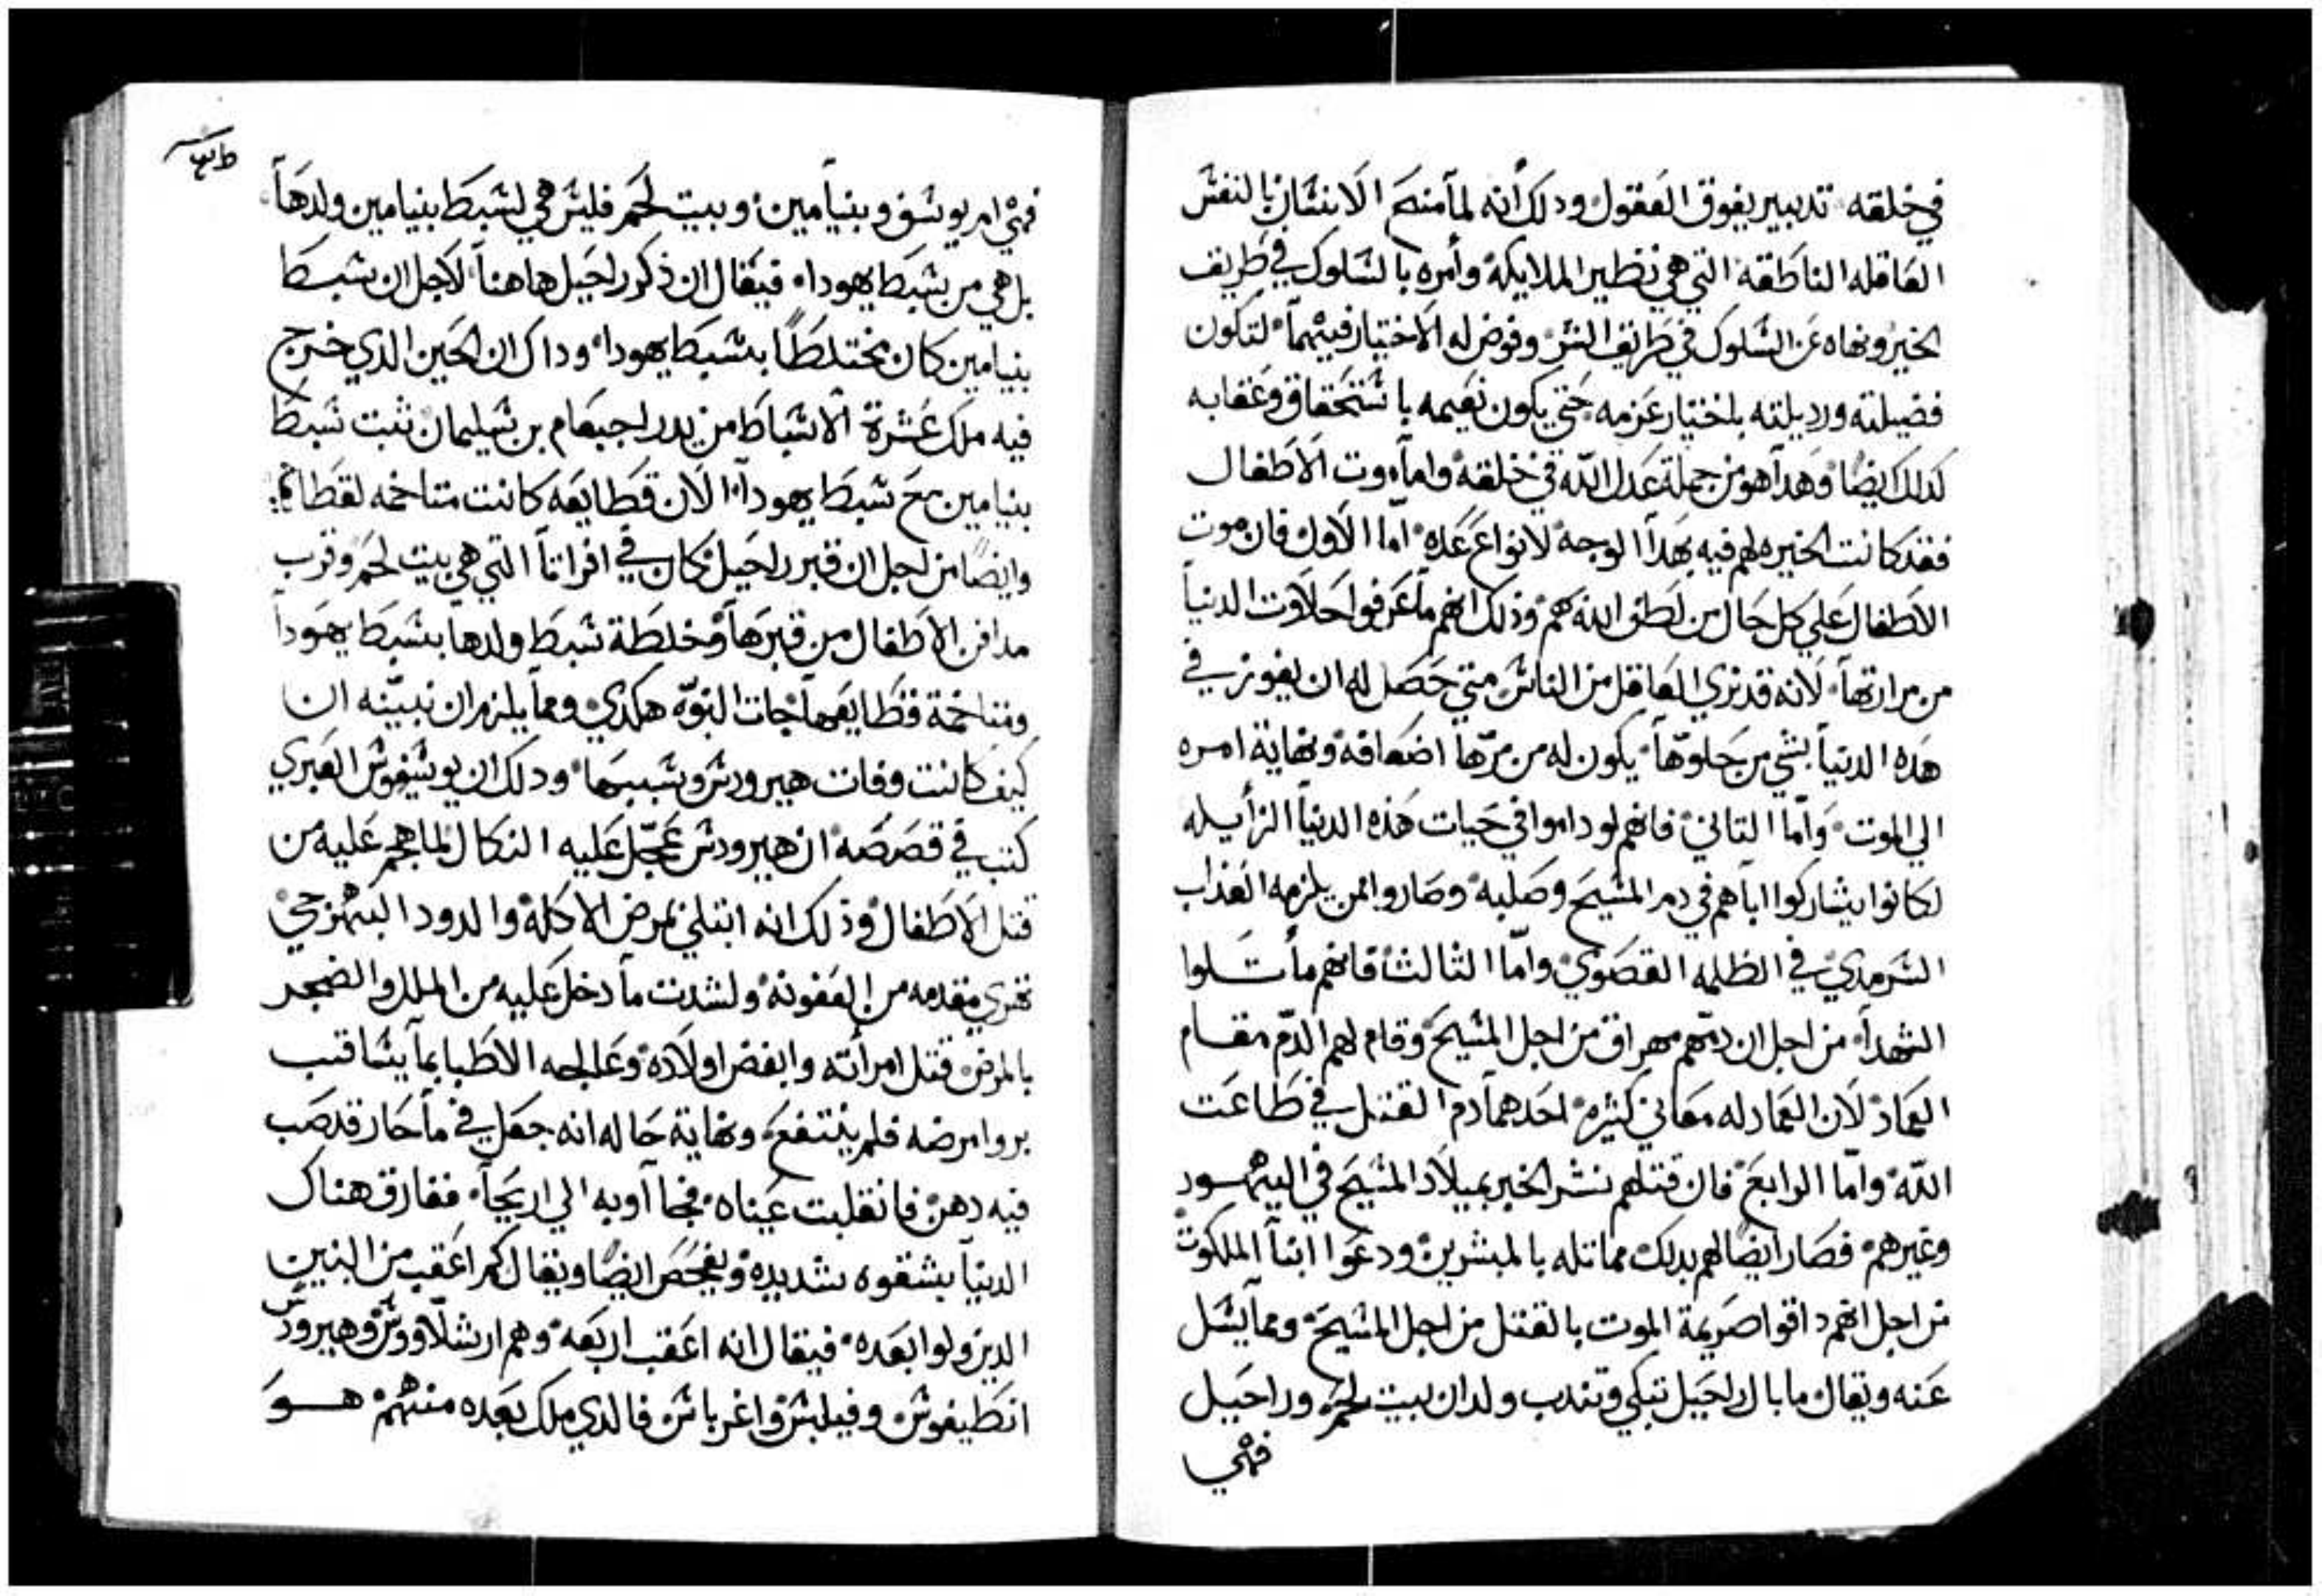 في خلقته تدبير يفوق العقول ودلك انه لما منح الانسان بالنفس
العاقله الناطقه التي هي نظير الملايكة وأمره بالسلوك في طريق
الخير ونهاه عن السلوك في طريق الشر وفوض له الاختيار فيهما لتكون
فضيلته ورديلته باختيار عزمه حتي يكون نعيمه باستحقاق وعقابه
كدلك ايضًا وهدا هو من جملة عدل الله في خلقه وامآ موت الاطفال
فقد كانت الخيره لهم فيه بهدا الوجه لانواع عده امّا الاول فان موت
الاطفال علي كل حال من لطف الله بهم وذلك انهم ما عرفوا حلاوت الدنيا
من مرارتها لانه قد نري العاقل من الناس متي حصل له ان يفوز في
هده الدنيا بشي من حلوّها يكون له من مرّها اضعافه ونهاية امره
الي الموت وامّا التاني فانهم لو داموا في حيات هذه الدنيا الزأيله
لكانوا يشاركوا اباهم في دم المسيح وصلبه وصاروا ممن يلزمه العذاب
السرمدي في الظلمه القصوي وامّا الثالث فانهم مأتلوا
الشهدآ من اجل ان دمّهم مهراق من اجل المسيح وقام لهم الدمّ مقام
العماد لان العماد له معاني كثيره احدهما دم القتل في طاعت
الله وامّا الرابع فان قتلهم نشر الخبر بميلاد المسيح في اليهود
وغيرهم فصار ايضًا لهم بدلك مماتله بالمبشرين ودعوا ابنآ الملكوت
من اجل انهم داقوا صريمة الموت بالقتل من اجل المسيح ومما يسل
عنه ويقال ما بال راحيل تبكي وتندب ولدان بيت لحم وراحيل
فهي
فهي ام يوسف وبنيامين وبيت لحم فليس هي لسبط بنيامين ولدها
بل هي من سبط يهودا فيقال ان ذكر راحيل هاهنا لاجل ان سبط
بنيامين كان مختلطًا بسبط يهودا وداك ان الحين الذي خرج
فيه ملك عشرة الاسباط من يد رحبعام بن سليمان ثبت سبط
بنيامين مع سبط يهودا لان قطايعه كانت متاخمه لقطايعه
وايضًا من اجل ان قبر راحيل كان في افراتا التي هي بيت لحم وقرب
مدافن الاطفال من قبرها ومخلطة سبط ولدها بسبط يهودا
ومتاخمة قطايعها جات النبوّه هكدي ومما يلزم ان نبيّنه ان
كيف كانت وفات هيرودس وسببها ودلك ان يوسيفوس العبري
كتب في قصصه ان هيرودس عجّل عليه النكال لما هجم عليه من
قتل الاطفال وذلك انه ابتلي بمرض الاكله والدود
مقدمه من العفونه ولشدت ما دخل عليه من الملل والضجر
بالمرض قتل امرأته وابغض اولاده وعالجه الاطبا بما يناقب
بروا مرضه فلم ينتفع ونهاية حاله انه جعل في مآ حار قد صب
فيه دهن فانقلبت عيناه فجاآوا به الي اريحا ففارق هناك
الدنيا بشقوه شديده ويفحص ايضًا ويقال كم اعقب من البنين
الدين ولوا بعده فيقال انه اعقب اربعه وهم ارشلاووس وهيرودس
انطيفوس وفيلبس واغرباس فالدي ملك بعده منهم هو